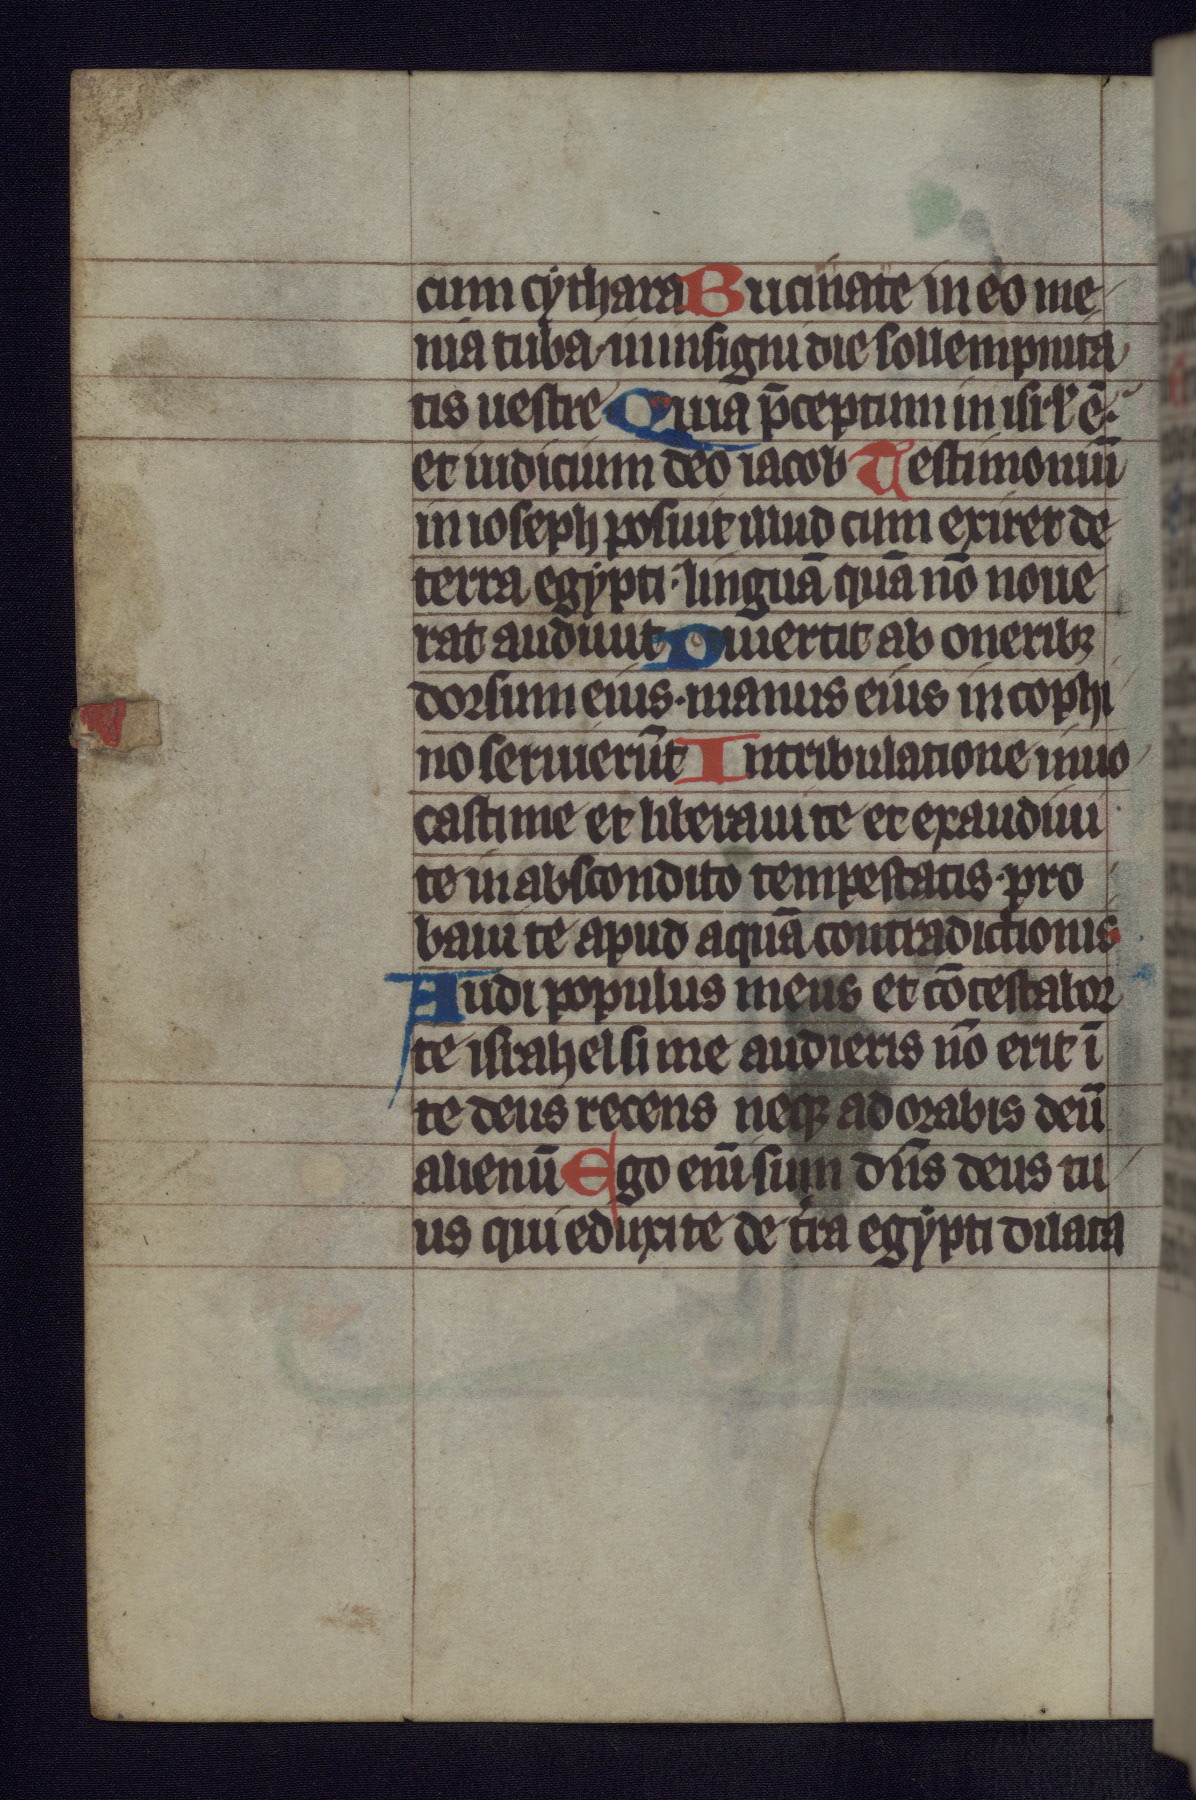 cum cythara Bucinate in eo me
nia tuba· in insigni die sollempnita
tis uestre Quia p̄ceptum in isr̄l ē·
et iudicium deo iacob Testimoniū
in ioseph posuit illud cum exiret de
terra egypti· linguā quā nō noue
rat audiuit Diuertit ab oneribꝫ
dorsum eius· manus eius in cophi
no seruierūt In tribulatione inuo
casti me et liberaui te et exaudiui
te in abscondito tempestatis· pro
baui te apud aquā contradictionis
Audi populus meus et cōtestabor
te israhel si me audieris nō erit ī
te deus recens neqꝫ adorabis deū
alienū Ego eni̅ sum dn̄s deus tu
us qui eduxi te de tr̄a egypti dilata